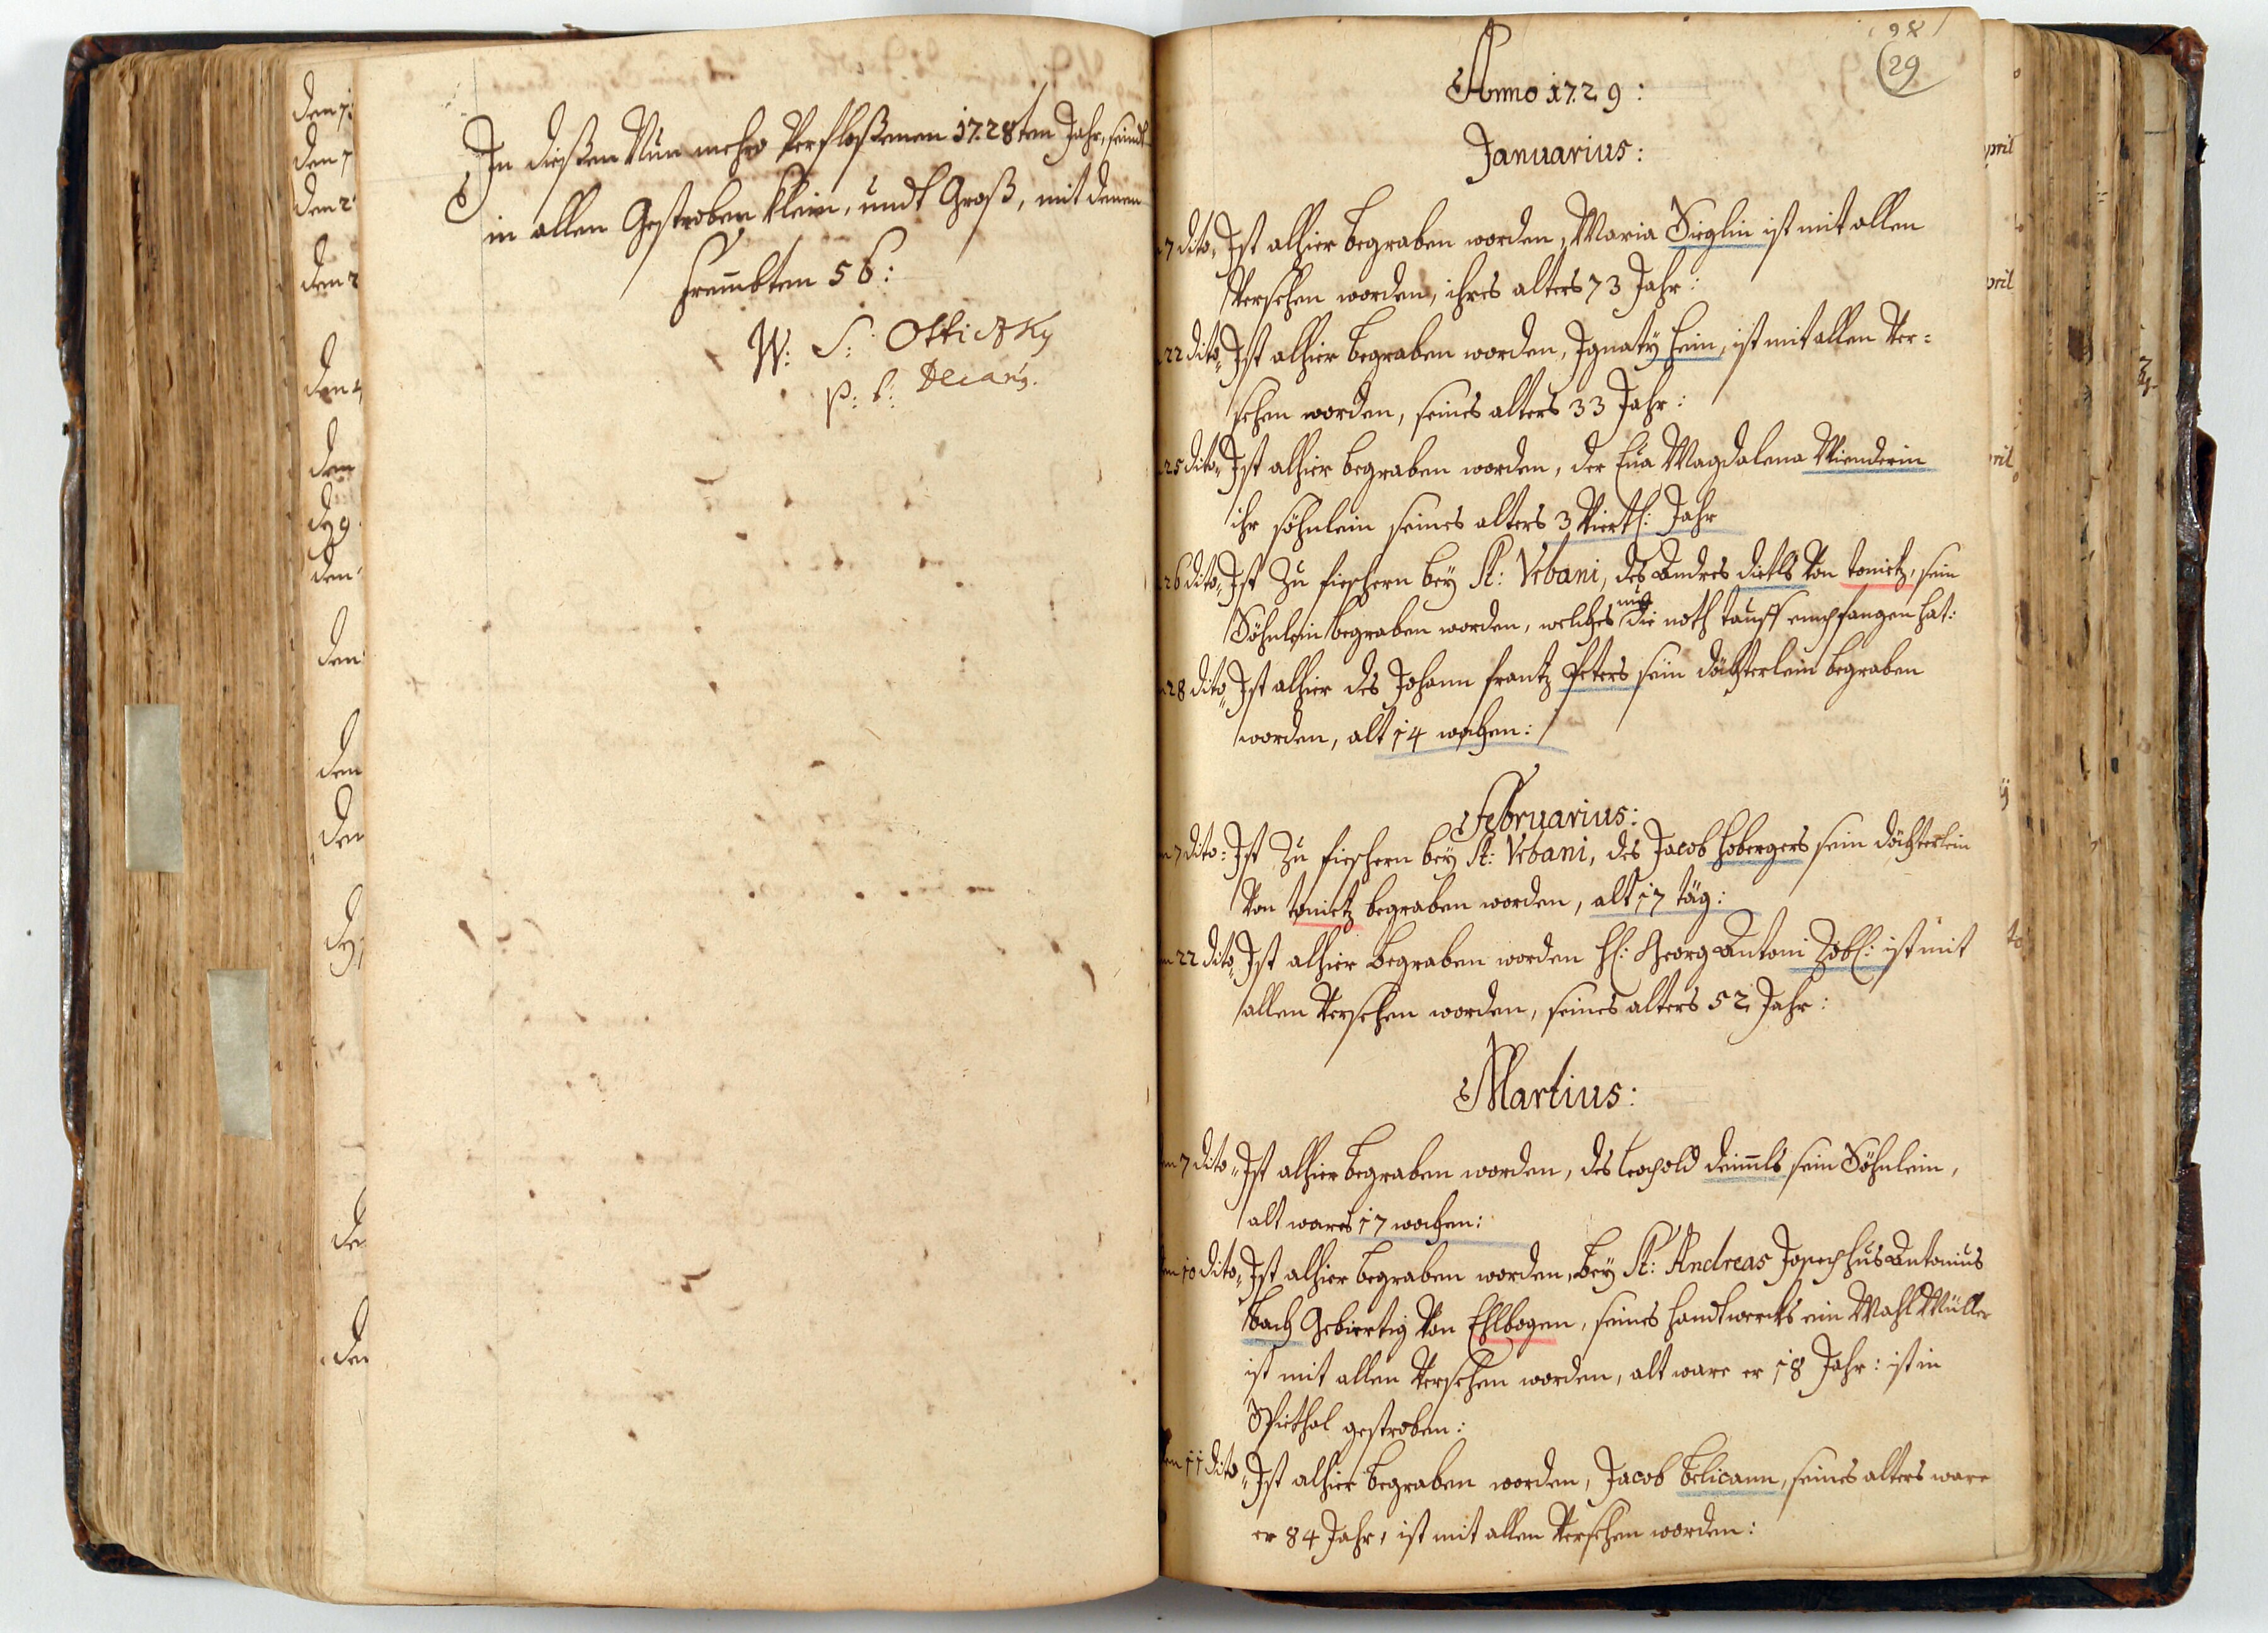 In dießen Nun mehro Verfloßenen 1728ten Jahr, seindt
in allen Gestroben klein, undt Groß, mit denen
frembten 56:
W: S: Ottickÿ
p: t: Decan9.
98
29
Anno 1729:
Januarius:
7 dito, Ist alhier begraben worden, Maria Sieglin ist mit allen
Versehen worden, ihres alters 73 Jahr:
22 dito, Ist alhier begraben worden, Ignatÿ Hein, ist mit allen Ver=
sehen worden, seines alters 33 Jahr:
25 dito, Ist alhier begraben worden, der Eua Magdalena Wienderin
ihr söhnlein seines alters 3 Viertl: Jahr
26 dito, Ist Zu fieschern beÿ St: Vrbani, des Andres dietls Von tonietz, sein
Söhnlein begraben worden, welches nur die noth tauff empfangen hat:
28 dito, Ist alhier des Johann frantz Peters sein döchterlein begraben
worden, alt 14 wochen:
Februarius:
7 dito: Ist Zu fieschern beÿ St: Vrbani, des Jacob Hobergers sein döchterlein
Von tonietz begraben worden, alt 17 täg:
22 dito, Ist alhier begraben worden H: Georg Antoni Zobl: ist mit
allen Versehen worden, seines alters 52 Jahr:
Martius:
7 dito, Ist alhier begraben worden, des Leopold deimls sein Söhnlein,
alt wares 17 wochen:
10 dito, Ist alhier begraben worden, beÿ St: Andreas Josephus Antonius
Bach Gebiertig Von Ehlbogen, seines handtwercks ein Mahl Müller
ist mit allen Versehen worden, alt ware er 18 Jahr: ist in
Spiethal gestroben:
11 dito, Ist alhier begraben worden, Jacob Belicann, seines alters ware
er 84 Jahr, ist mit allen Versehen worden: